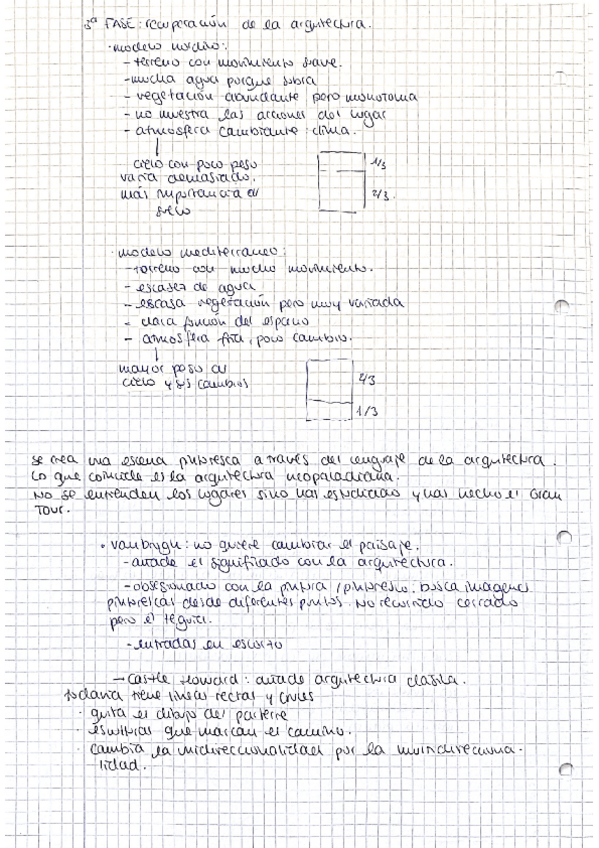 3ª FASE: recuperación de la arquitectura.
· modelo nórdico:
- terreno con movimiento suave.
- mucha agua porque sobra
- vegetación abundante pero monotoma
- no muestra las acciones del lugar
- atmosfera cambiante: clima.
cielo con poco peso
varia demasiado.
más importancia al
suelo
1/3
2/3.
· modelo mediterraneo:
- terreno con mucho movimiento.
- escasez de agua
- escasa vegetación pero muy variada
- clara función del espacio
- atmosfera fija, poco cambio.
mayor peso al
cielo y sus cambios
2/3
1/3
se crea una escena pintoresca a través del lenguaje de la arquitectura.
Lo que coincide es la arquitectura neopaladiana.
No se entienden los lugares sino has estudiado y has hecho el Gran
Tour.
· vanbrugh: no quiere cambiar el paisaje.
- añade el significado con la arquitectura.
- obsesionado con la pintura / pintoresco. busca imagenes
pintorescas desde diferentes puntos. No recorrido cerrado
pero el
- entradas en escorzo
→ castle Howard: añade arquitectura clásica.
todavia tiene lineas rectas y
· quita el dibujo del parterre
· esculturas que marcan el camino.
· cambia la unidireccionalidad por la multidirecciona-
lidad.